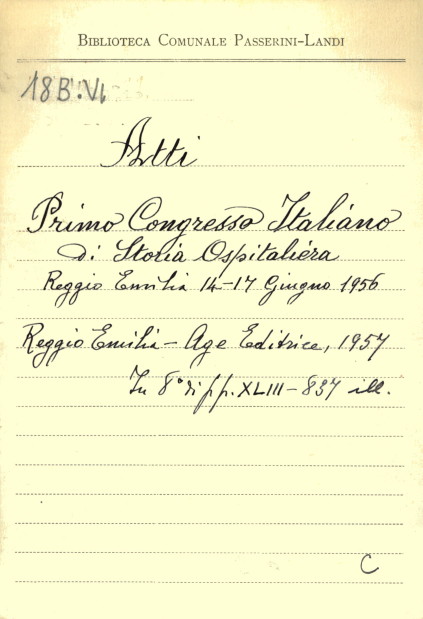 BIBLIOTECA COMUNALE PASSERINI-LANDI
18 B. VI,
Atti
Primo Congresso Italiano
di Storia Ospitaliera
Reggio Emilia 14-17 Giugno 1956
Reggio Emilia - Age Editrice, 1957
In 8° di pp. XLIII - 837 ill.
C